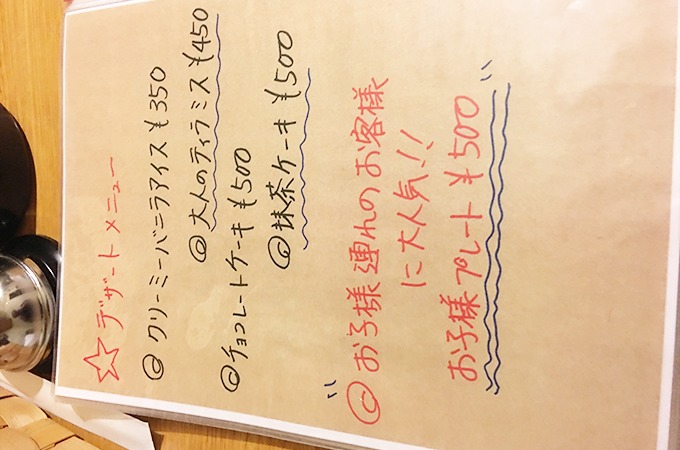 ☆デザートメニュー
◎クリーミーバニラアイス¥350
◎大人のティラミス¥450
◎チョコレートケーキ¥500
◎抹茶ケーキ¥500
◎お子様連れのお客様
に大人気!!
お子様プレート¥500